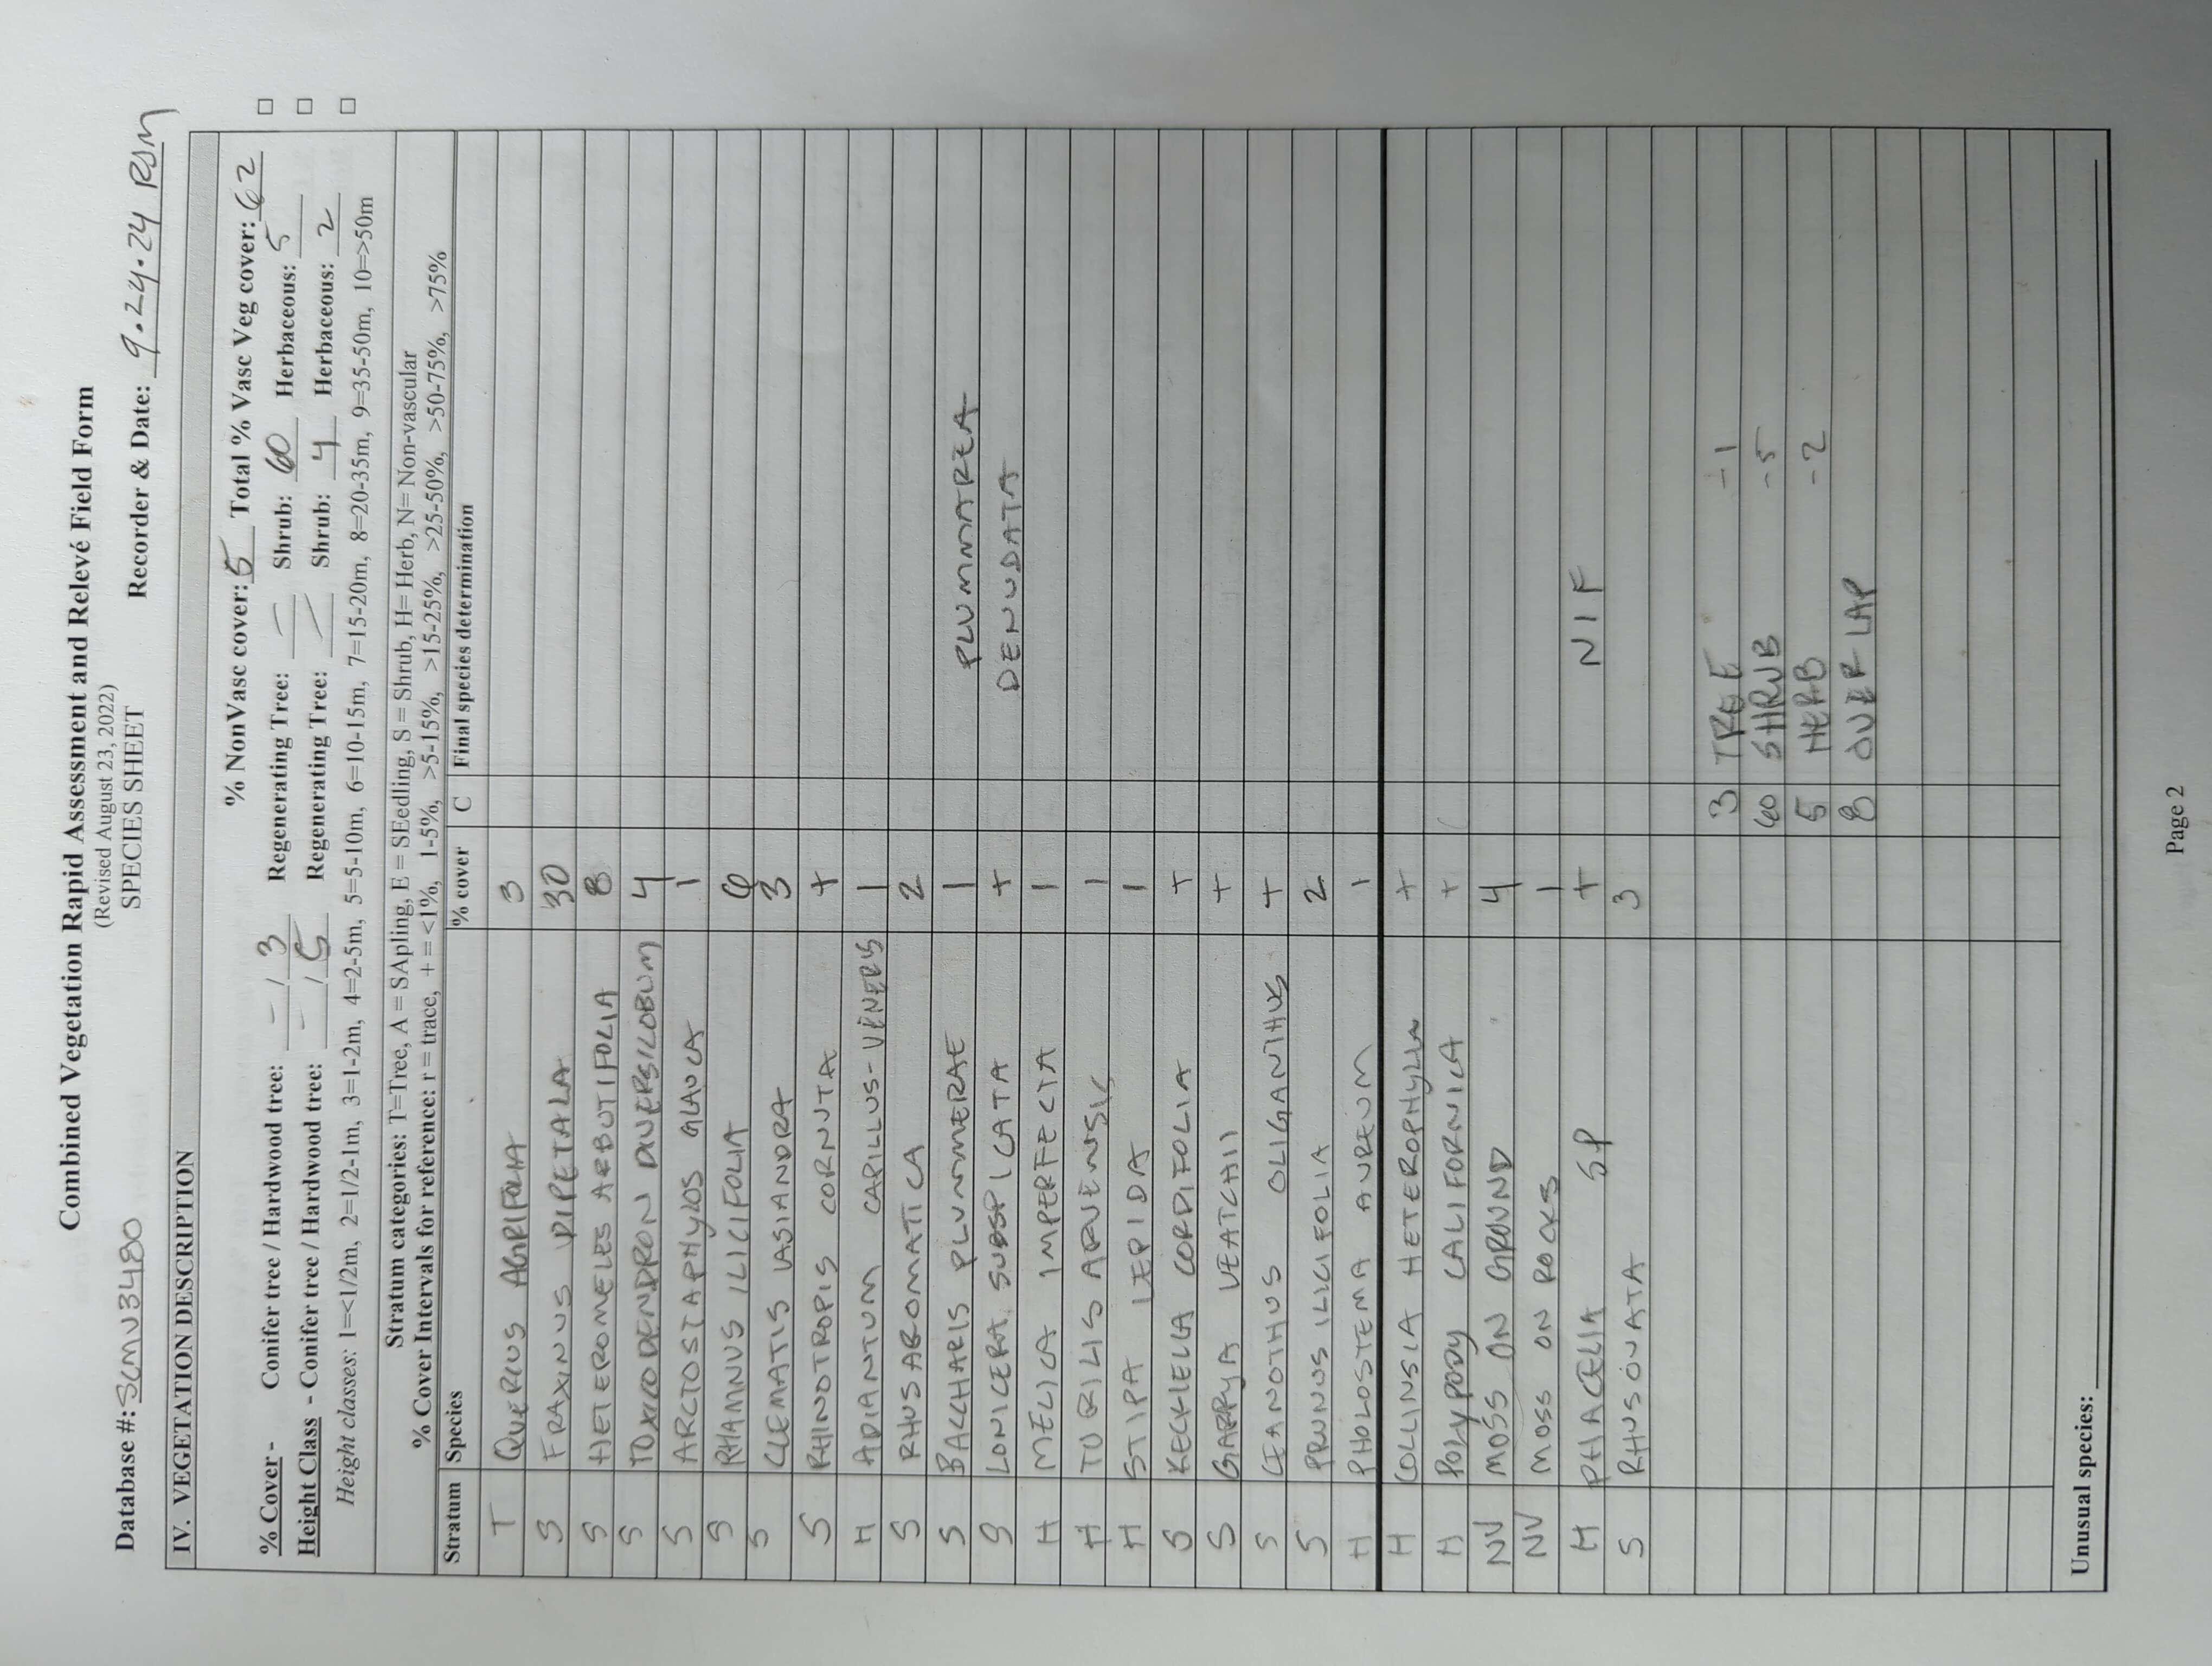 Combined Vegetation Rapid Assessment and Relevé Field Form
(Revised August 23, 2022)
SPECIES SHEET
Database #: SCMU3480 Recorder & Date: 9.24.24 RJM
IV. VEGETATION DESCRIPTION
% NonVasc cover: 5 Total % Vasc Veg cover: 62
% Cover - Conifer tree / Hardwood tree: - / 3 Regenerating Tree: - Shrub: 60 Herbaceous: 5
Height Class - Conifer tree / Hardwood tree: - / 5 Regenerating Tree: - Shrub: 4 Herbaceous: 2
Height classes: 1=<1/2m, 2=1/2-1m, 3=1-2m, 4=2-5m, 5=5-10m, 6=10-15m, 7=15-20m, 8=20-35m, 9=35-50m, 10=>50m
Stratum categories: T=Tree, A = SApling, E = SEedling, S = Shrub, H= Herb, N= Non-vascular
% Cover Intervals for reference: r = trace, + = <1%, 1-5%, >5-15%, >15-25%, >25-50%, >50-75%, >75%
Stratum Species % cover C Final species determination
T QUERCUS AGRIFOLIA 3
S FRAXINUS DIPETALA 30
S HETEROMELES ARBUTIFOLIA 8
S TOXICODENDRON DIVERSILOBUM 4
S ARCTOSTAPHYLOS GLAUCA 1
S RHAMNUS ILICIFOLIA 6
S CLEMATIS LASIANDRA 3
S RHINOTROPIS CORNUTA +
H ADIANTUM CAPILLUS-VENERIS 1
S RHUS AROMATICA 2
S BACCHARIS PLUMMERAE 1 PLUMMAREA
S LONICERA SUBSPICATA + DENUDATA
H MELICA IMPERFECTA 1
H TORILIS ARVENSIS 1
H STIPA LEPIDA 1
S KECKIELLA CORDIFOLIA +
S GARRYA VEATCHII +
S CEANOTHUS OLIGANTHUS +
S PRUNUS ILICIFOLIA 2
H PHOLOSTEMA AUREUM 1
H COLLINSIA HETEROPHYLLA +
H POLYPODY CALIFORNICA +
NV MOSS ON GROUND 4
NV MOSS ON ROCKS 1
H PHACELIA SP + NIF
S RHUS OVATA 3
3 TREE -1
60 SHRUB -5
5 HERB -2
8 OVERLAP
Unusual species:
Page 2